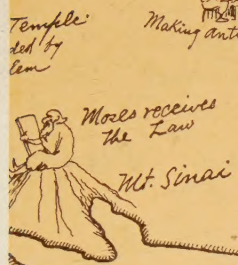 Temple:
ded by
lem
Making Anti
Moses receives
the Law
Mt. Sinai